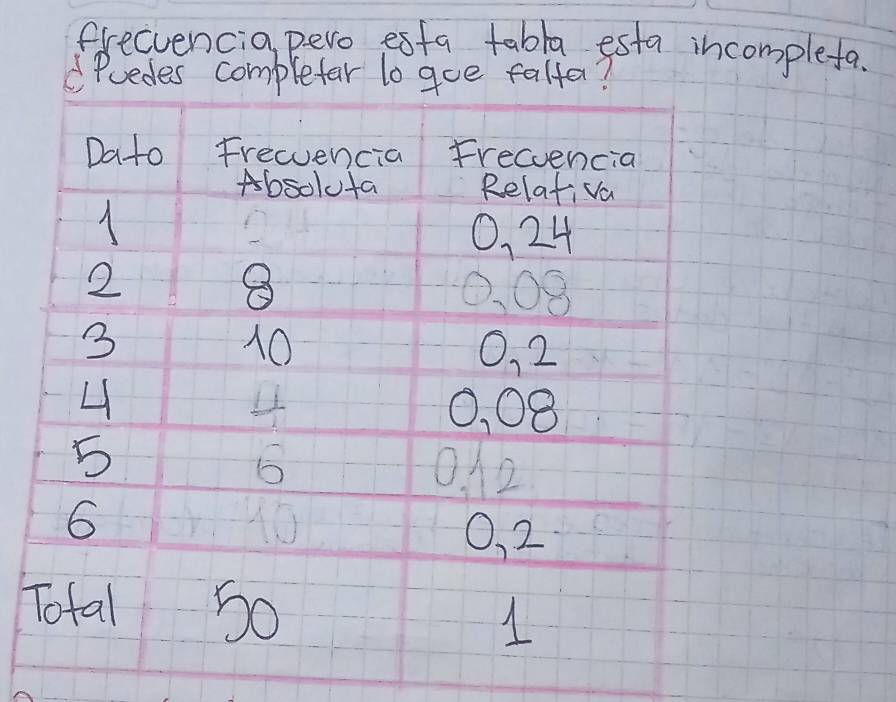 frecuencia, pero esta tabla esta incompleta.
¿Puedes completar lo que falta?
Dato Frecuencia Frecuencia
Absoluta Relativa
1 0,24
2 8 0,08
3 10 0,2
4 4 0,08
5 6 0,12
6 10 0,2
Total 50 1